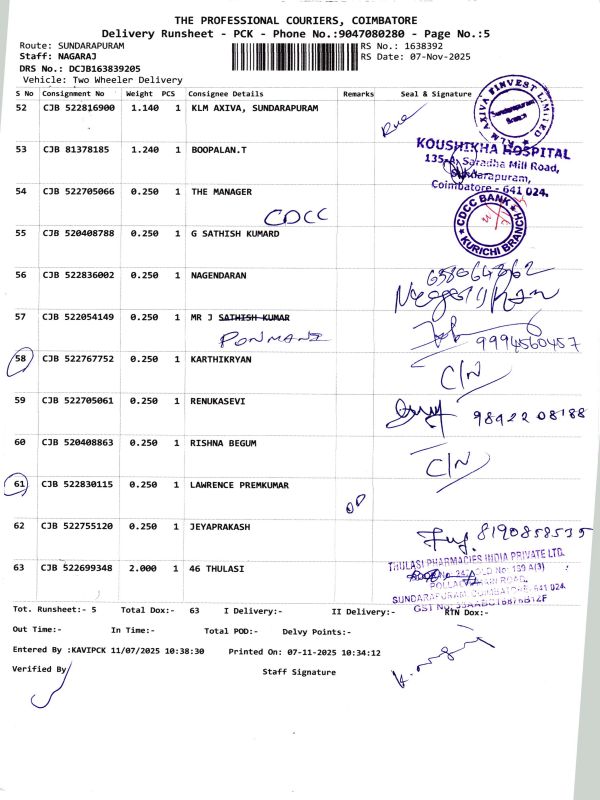 THE PROFESSIONAL COURIERS, COIMBATORE
Delivery Runsheet - PCK - Phone No.:9047080280 - Page No.:5
Route: SUNDARAPURAM
RS No.: 1638392
Staff: NAGARAJ
RS Date: 07-Nov-2025
DRS No.: DCJB163839205
Vehicle: Two Wheeler Delivery
S No Consignment No Weight PCS Consignee Details Remarks Seal & Signature
52 CJB 522816900 1.140 1 KLM AXIVA, SUNDARAPURAM
AXIVA FINVEST LIMITED
Sundarapuram
Branch
53 CJB 81378185 1.240 1 BOOPALAN.T
KOUSHIKHA HOSPITAL
135-A, Saradha Mill Road,
Sundarapuram,
Coimbatore - 641 024.
54 CJB 522705066 0.250 1 THE MANAGER
CDCC
CDCC BANK
KURICHI BRANCH
55 CJB 520408788 0.250 1 G SATHISH KUMARD
56 CJB 522836002 0.250 1 NAGENDARAN
57 CJB 522054149 0.250 1 MR J SATHISH KUMAR
PONMANI
9994560457
58 CJB 522767752 0.250 1 KARTHIKRYAN
C/N
59 CJB 522705061 0.250 1 RENUKASEVI
98422 08188
60 CJB 520408863 0.250 1 RISHNA BEGUM
C/N
61 CJB 522830115 0.250 1 LAWRENCE PREMKUMAR
OD
62 CJB 522755120 0.250 1 JEYAPRAKASH
8190858535
63 CJB 522699348 2.000 1 46 THULASI
THULASI PHARMACIES INDIA PRIVATE LTD.
SUNDARAPURAM, COIMBATORE - 641 024.
Tot. Runsheet:- 5 Total Dox:- 63 I Delivery:- II Delivery:- RTN Dox:-
Out Time:- In Time:- Total POD:- Delvy Points:-
Entered By :KAVIPCK 11/07/2025 10:38:30 Printed On: 07-11-2025 10:34:12
Verified By
Staff Signature